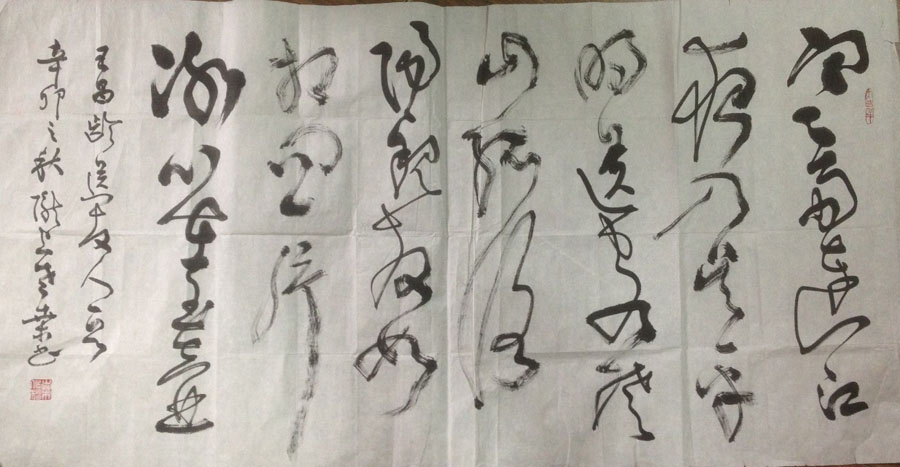 寒雨連江
夜入吴平
明送客楚
山孤洛
陽親友如
相問一片
冰心在玉壺
王昌龄送友人
辛卯之秋隴上